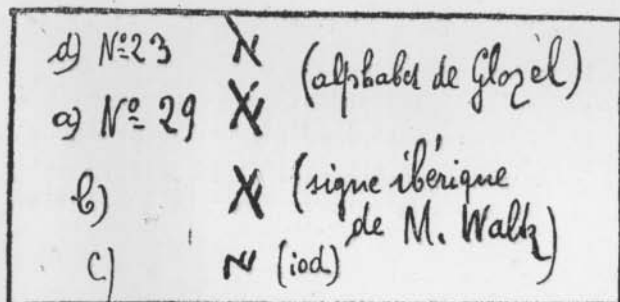 d) Nº 23 (alphabet de Glozèl)
a) Nº 29
b) (signe ibérique
de M. Waltz)
c) (iod)